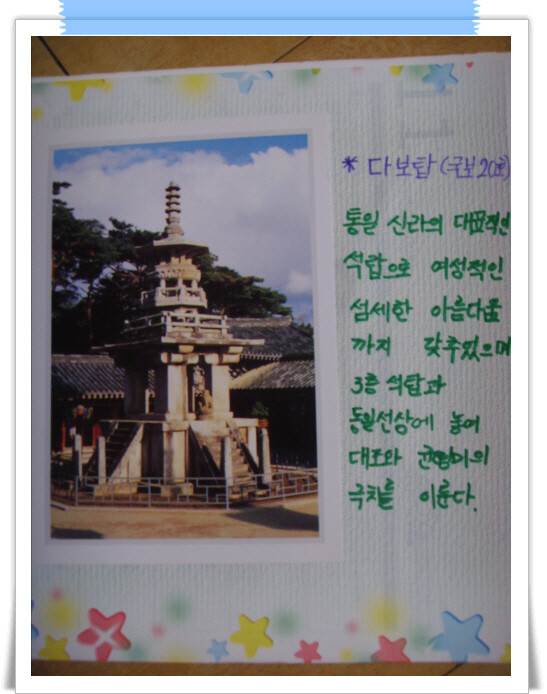 * 다보탑 (국보20호)
통일 신라의 대표적인
석탑으로 여성적인
섬세한 아름다움
까지 갖추었으며
3층 석탑과
동일선상에 놓여
대조와 균형미의
극치를 이룬다.